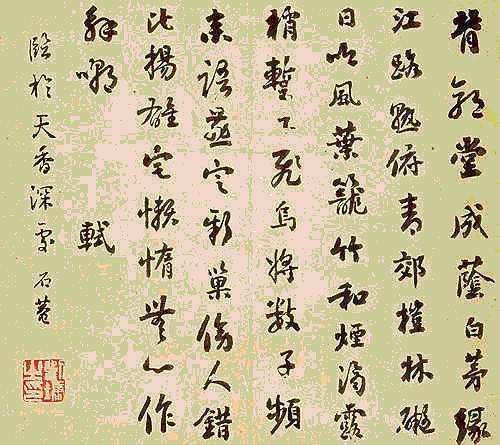 背郭堂成蔭白茅緣
江路熟俯青郊榿林礙
日吟風葉籠竹和煙滴露
梢蹔下飛烏將數子頻
來語燕定新巢傍人錯
比揚雄宅懶惰無心作
解嘲 軾
臨於天香深處 石菴